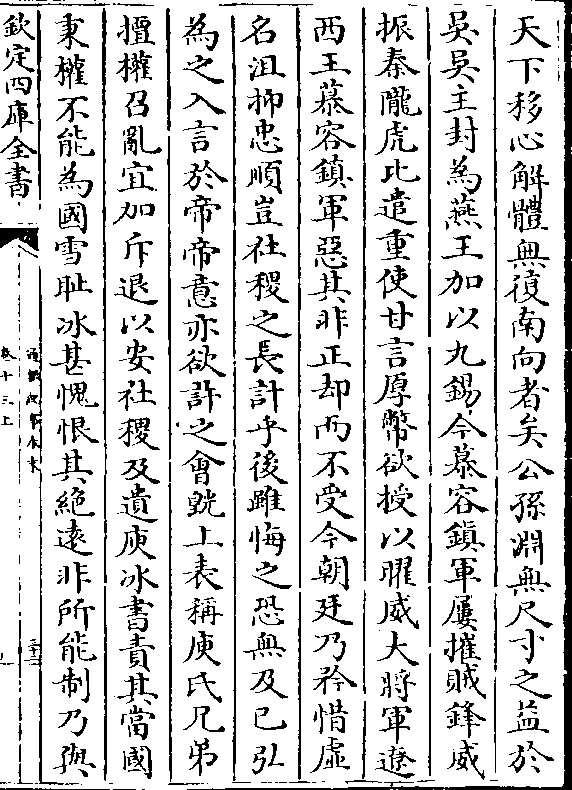 天下移心解體無復南向者矣公孫淵無尺寸之益於
吳吳主封為燕王加以九錫今慕容鎮軍屢摧賊鋒威
振秦隴虎比遣重使甘言厚幣欲授以曜威大將軍遼
西王慕容鎮軍惡其非正却而不受今朝廷乃矜惜虛
名沮抑忠順豈社稷之長計乎後雖悔之恐無及已弘
為之入言於帝帝意亦欲許之會皝上表稱庾氏兄弟
擅權召亂宜加斥退以安社稷及遺庾冰書責其當國
秉權不能為國雪恥冰甚愧恨其絕遠非所能制乃與
欽定四庫全書
卷十三上